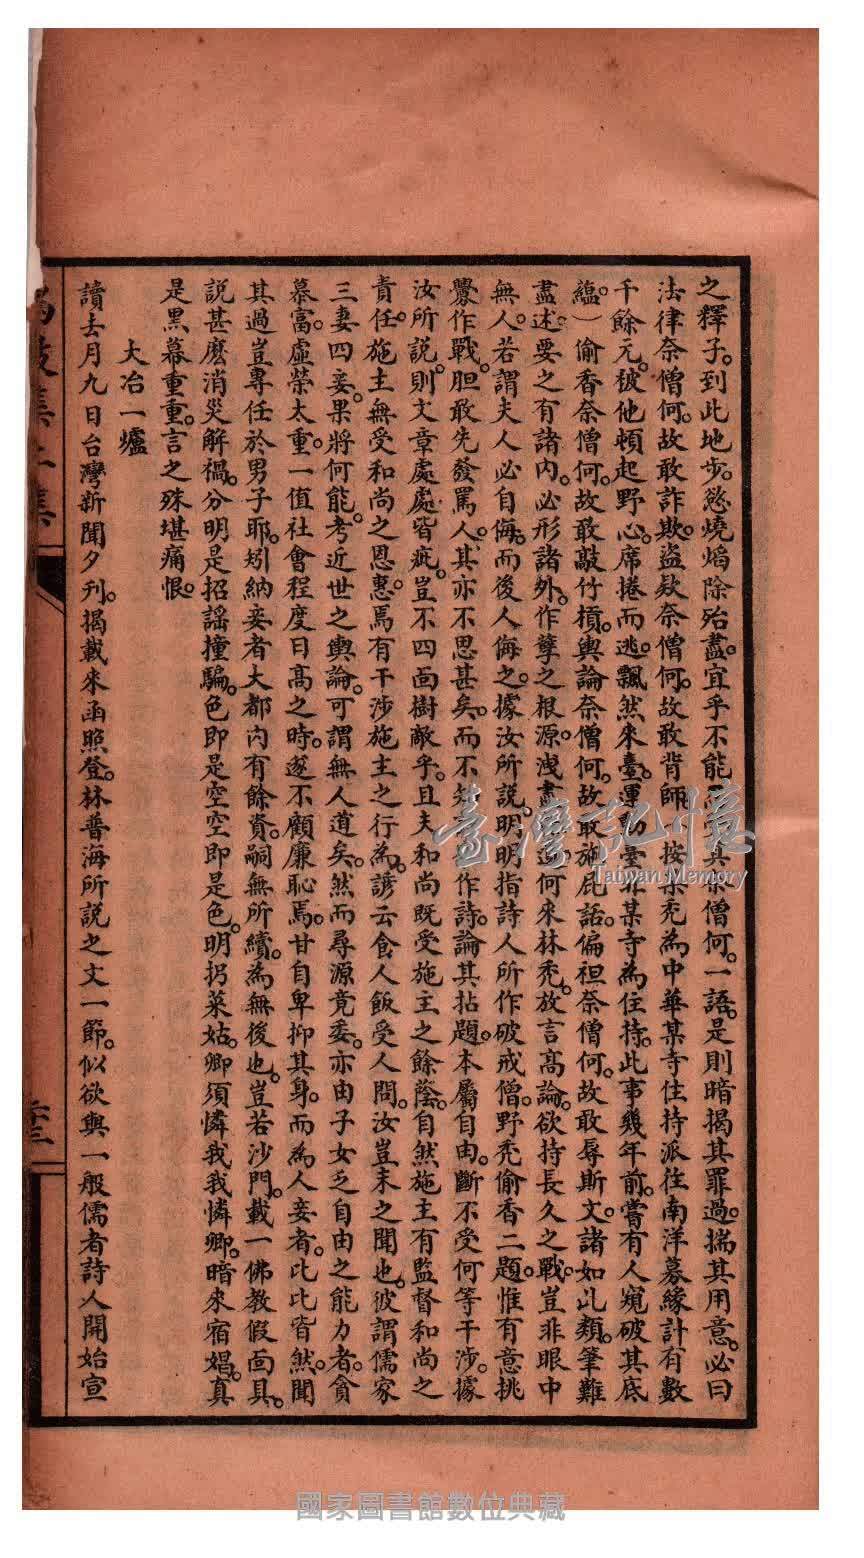 之釋子。到此地步。慾燒焰除殆盡。宜乎不能 其奈僧何。一語。是則暗揭其罪過。揣其用意。必曰
法律奈僧何。故敢詐欺。盜欵奈僧何。故敢背師。 按某禿為中華某寺住持派往南洋募緣計有數
千餘元。被他頓起野心。席捲而逃。飄然來臺。運動臺北某寺為住持。此事幾年前。嘗有人窺破其底
蘊）偷香奈僧何。故敢敲竹槓。輿論奈僧何。故敢施屁話。偏袒奈僧何。故敢辱斯文。諸如此類。筆難
盡述。要之有諸內。必形諸外。作孽之根源。洩盡 何來林禿。放言高論。欲持長久之戰。豈非眼中
無人。若謂夫人必自侮。而後人侮之。據汝所說。明明指詩人所作破戒僧。野禿偷香二題。惟有意挑
釁作戰。胆敢先發罵人。其亦不思甚矣。而不知 作詩。論其拈題。本屬自由。斷不受何等干涉。據
汝所說。則文章處處皆疵。豈不四面樹敵乎。且夫和尚既受施主之餘蔭。自然施主有監督和尚之
責任。施主無受和尚之恩惠。焉有干涉施主之行為。諺云食人飯受人問。汝豈未之聞也。彼謂儒家
三妻四妾。果將何能。考近世之輿論。可謂無人道矣。然而尋源竟委。亦由子女乏自由之能力者。貪
慕富。虛榮太重。一值社會程度日高之時。遂不顧廉恥焉。甘自卑抑其身。而為人妾者。比比皆然。聞
其過豈專任於男子耶。矧納妾者大都內有餘資。嗣無所續。為無後也。豈若沙門。載一佛教假面具。
說甚麽消災解禍。分明是招謠撞騙。色即是空空即是色。明扚菜姑。卿須憐我我憐卿。暗來宿娼。真
是黑幕重重。言之殊堪痛恨。
大冶一爐
讀去月九日台灣新聞夕刊。揭載來函照登。林普海所說之文一節。似欲與一般儒者詩人開始宣
集
臺灣記憶
Taiwan Memory
國家圖書館數位典藏